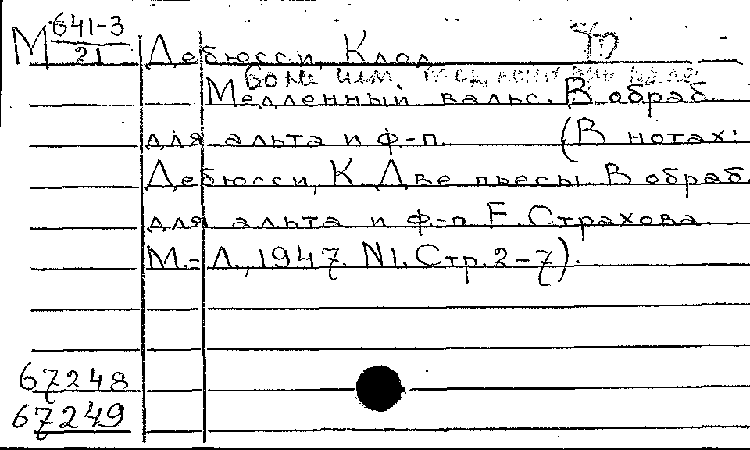 М 641-3
21
Дебюсси, Клод
Медленный вальс. В обраб.
для альта и ф-п. (В нотах:
Дебюсси, К. Две пьесы. В обраб.
для альта и ф-п. Е. Страхова
М.-Л., 1947. N1. Стр. 2-7).
67248
67249